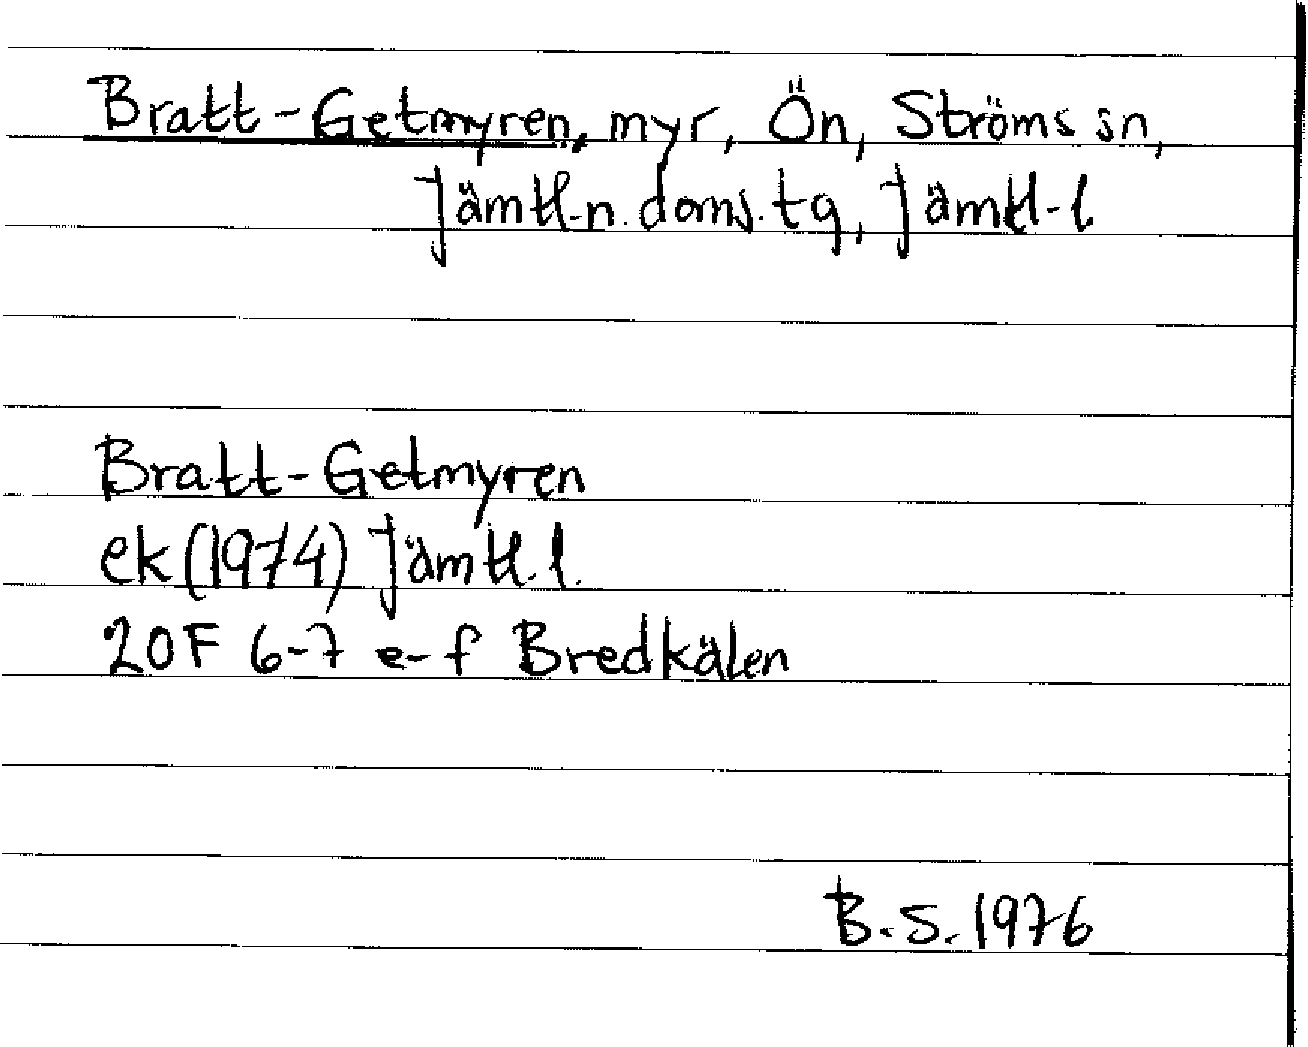 Bratt-Getmyren, myr, Ön, Ströms sn,
Jämtl.n.doms.tg, Jämtl.l.
Bratt-Getmyren
ek (1974) Jämtl.l.
20F 6-7 e-f Bredkälen
B.S. 1976